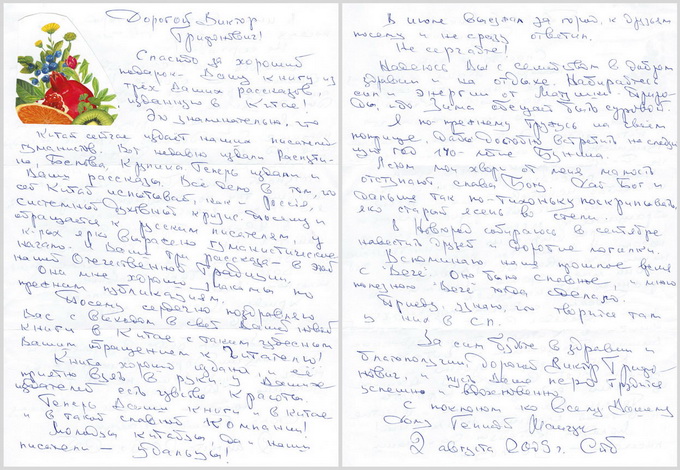 Дорогой Виктор
Григорьевич!
Спасибо за хороший
подарок – Вашу книгу из
трёх Ваших рассказов,
изданную в Китае!
Это знаменательно, что
Китай сейчас издаёт наших писателей
гуманистов. Вот недавно издали Распути-
на, Белова, Крупина, теперь издали и
Ваши рассказы. Всё дело в том, что
сей Китай испытывает, как и Россия,
системный духовный кризис. Посему и
обращается к русским писателям, у
к-рых ярко выражено гуманистическое
начало. И Ваши три рассказа – в этой
нашей Отечественной традиции.
Они мне хорошо знакомы по
прежним публикациям.
Посему сердечно поздравляю
Вас с выходом в свет Вашей новой
книги в Китае с таким чудесным
Вашим обращением к Читателю!
Книга хорошо издана, и её
приятно взять в руки. У Ваших
издателей есть чувство красоты.
Теперь Ваши книги и в Китае
и в такой славной компании!
Молодцы китайцы, да и наши
писатели – удальцы!
В июле выезжал за город, к друзьям
посему и не сразу ответил.
Не серчайте!
Надеюсь Вы с семейством в добром
здравии и на отдыхе. Набирайтесь
сил и энергии от Матушки-Приро-
ды, ибо Зима обещает быть суровой.
Я по-прежнему тружусь на своём
поприще. Дабы достойно встретить на следую-
щий год 140-летие Бунина.
Леты мои хвори от меня малость
отступают, слава Богу. Дай Бог и
дальше так по-тихоньку поскрипывать
яко старый ясень во степи.
В Новгород собираюсь в сентябре
навестить друзей и дорогие могилки.
Вспоминаю наше прошлое время
с "Вече". Оно было славное, и много
полезного "Вече" тогда сделало.
Приеду, узнаю, что творится там
у них в СП.
За сим будьте в здравии и
благополучии, дорогой Виктор Григо-
рьевич, и пусть Ваше перо трудится
успешно и вдохновенно.
С поклоном ко всему Вашему
дому Геннадий
2 августа 2009 г. СПб